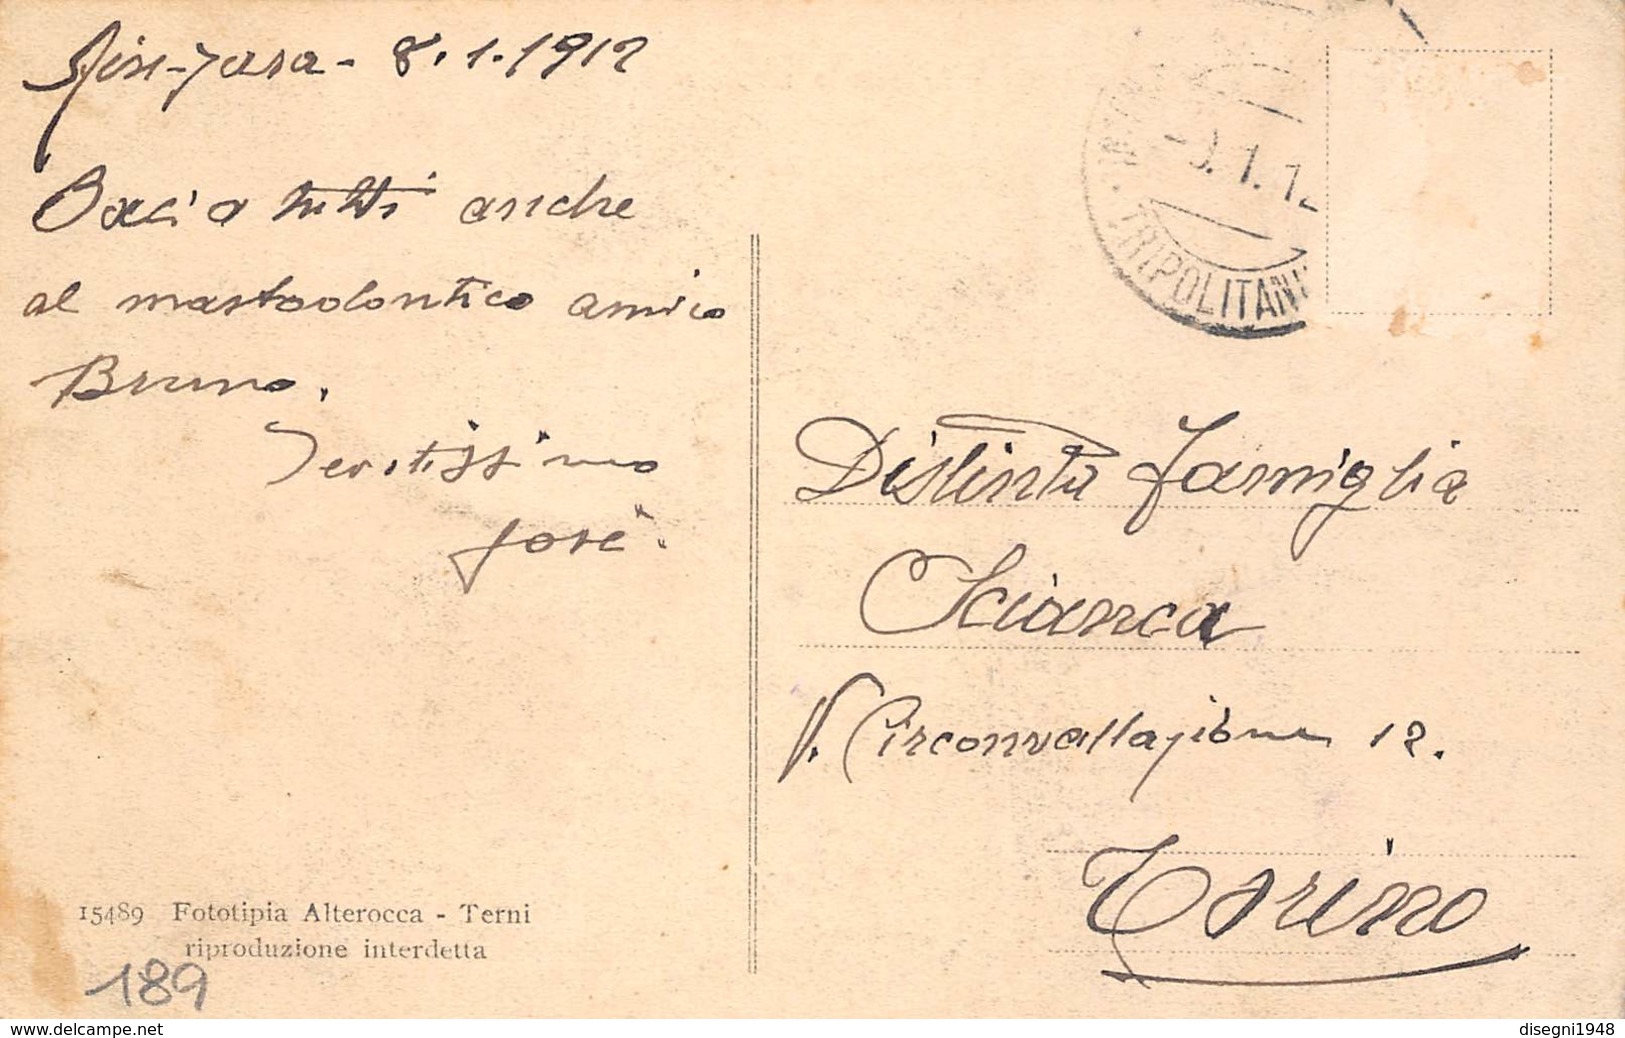 Ain-Zara - 8.1.1912
Baci a tutti anche
al mastodontico amico
Bruno.
josè.
TRIPOLITAN
.1.12
Distinta famiglia
Scianca
V. Circonvallazione 12.
Torino
15489 Fototipia Alterocca - Terni
riproduzione interdetta
189
www.delcampe.net
disegni1948